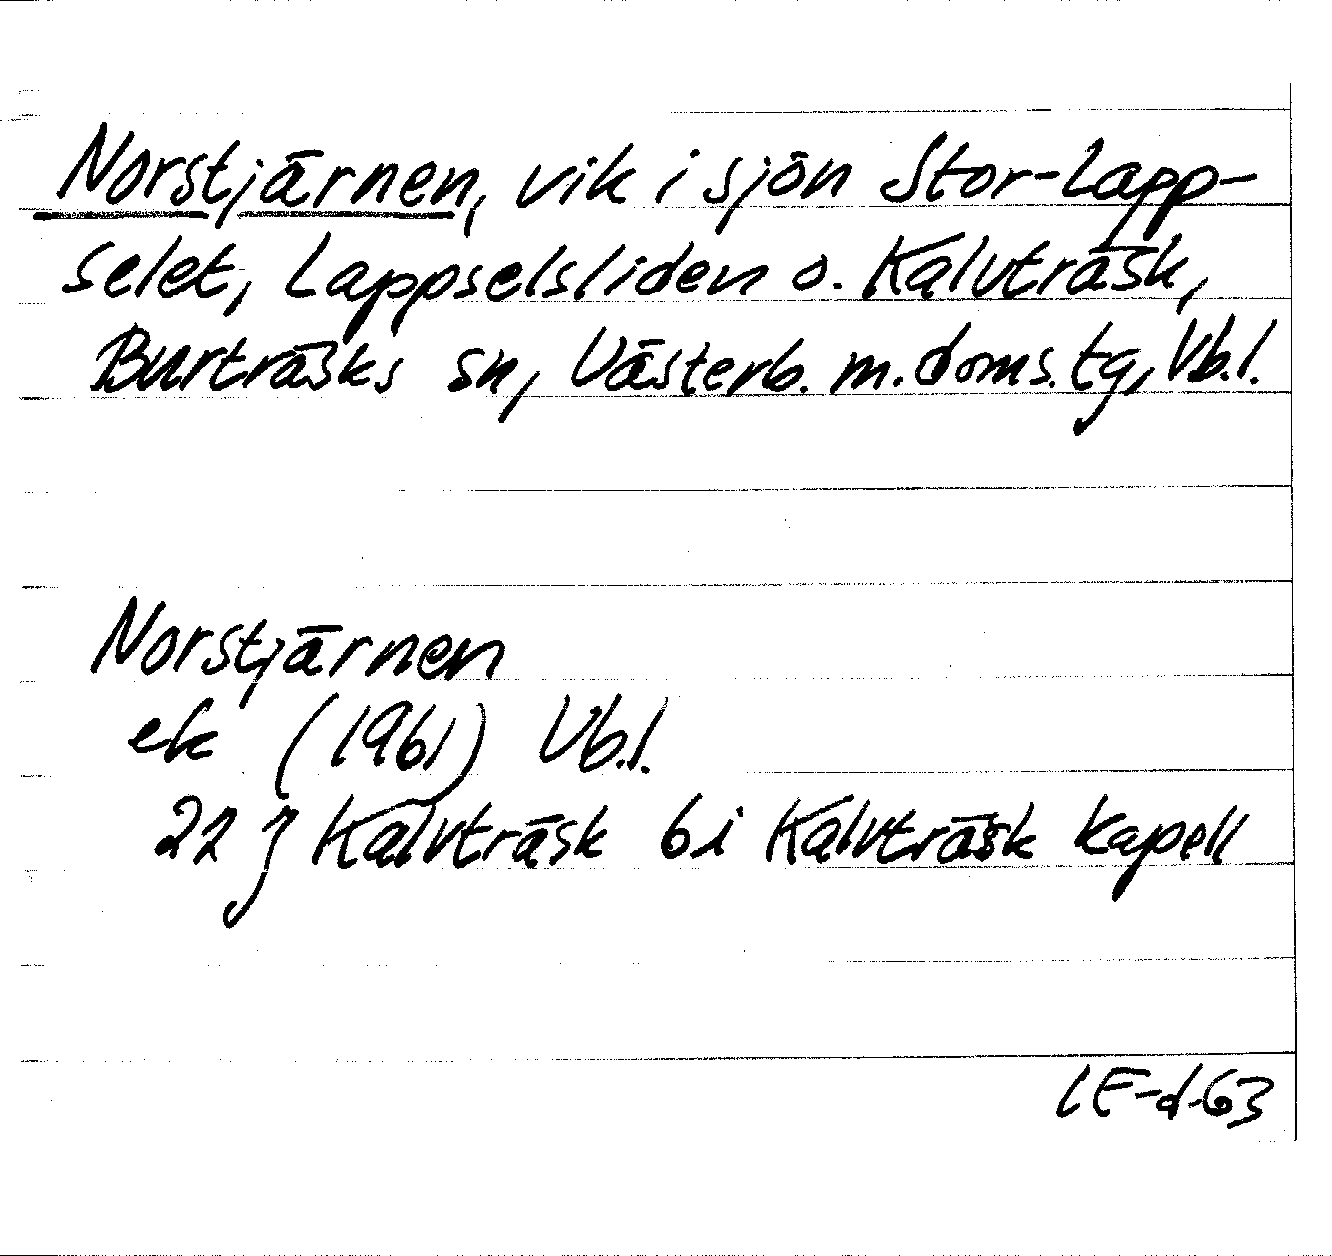 Norstjärnen, vik i sjön Stor-Lapp-
selet, Lappselsliden o. Kalvträsk,
Burträsks sn, Västerb. m. doms. tg, Vb.l.
Norstjärnen
ek (1961) Vb.l.
22 j Kalvträsk bi Kalvträsk kapell
LE-d-63